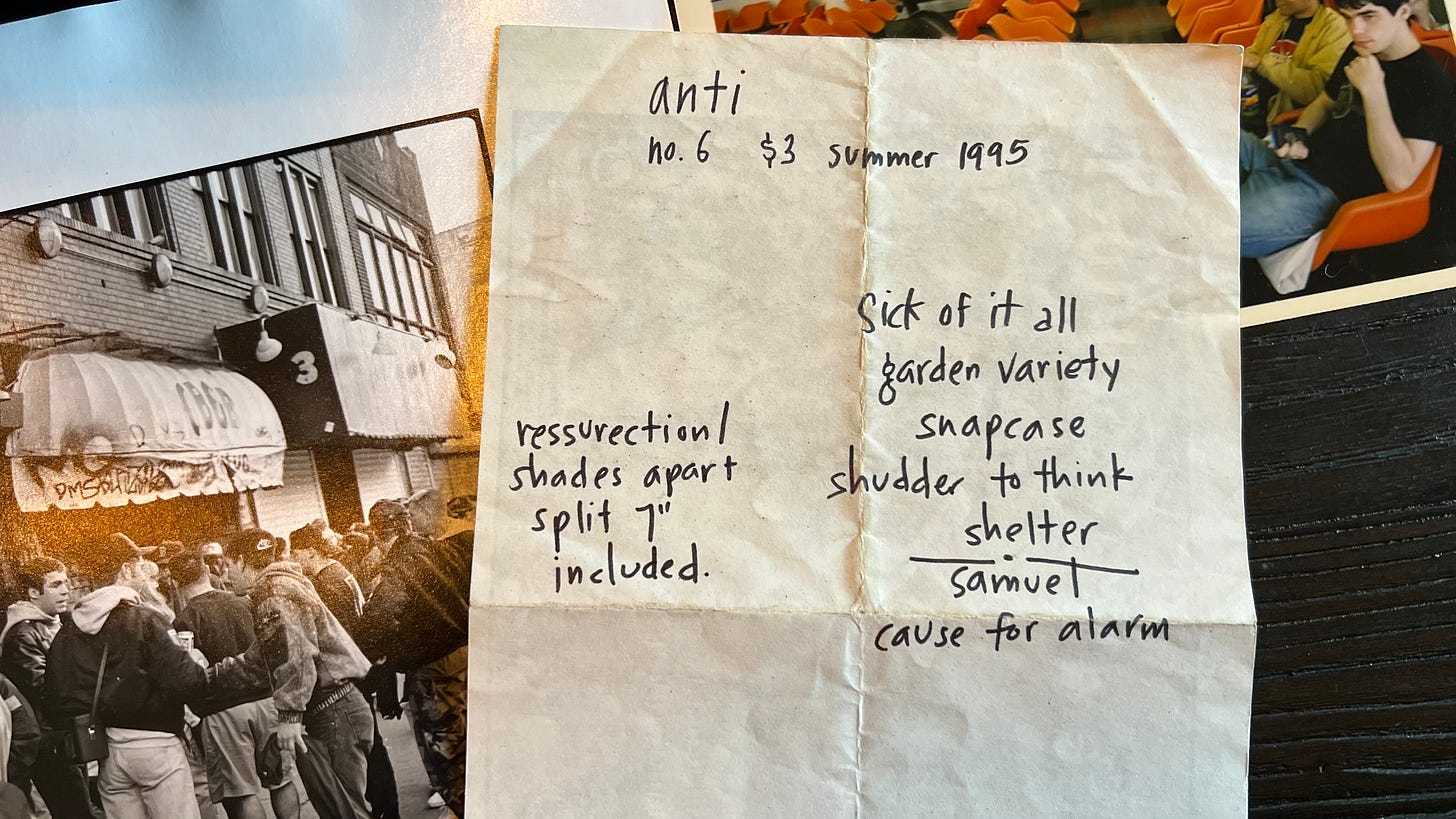 anti
no. 6 $3 summer 1995
Sick of it all
garden variety
snapcase
shudder to think
shelter
samuel
cause for alarm
ressurection/
shades apart
split 7"
included.
3
CBGB